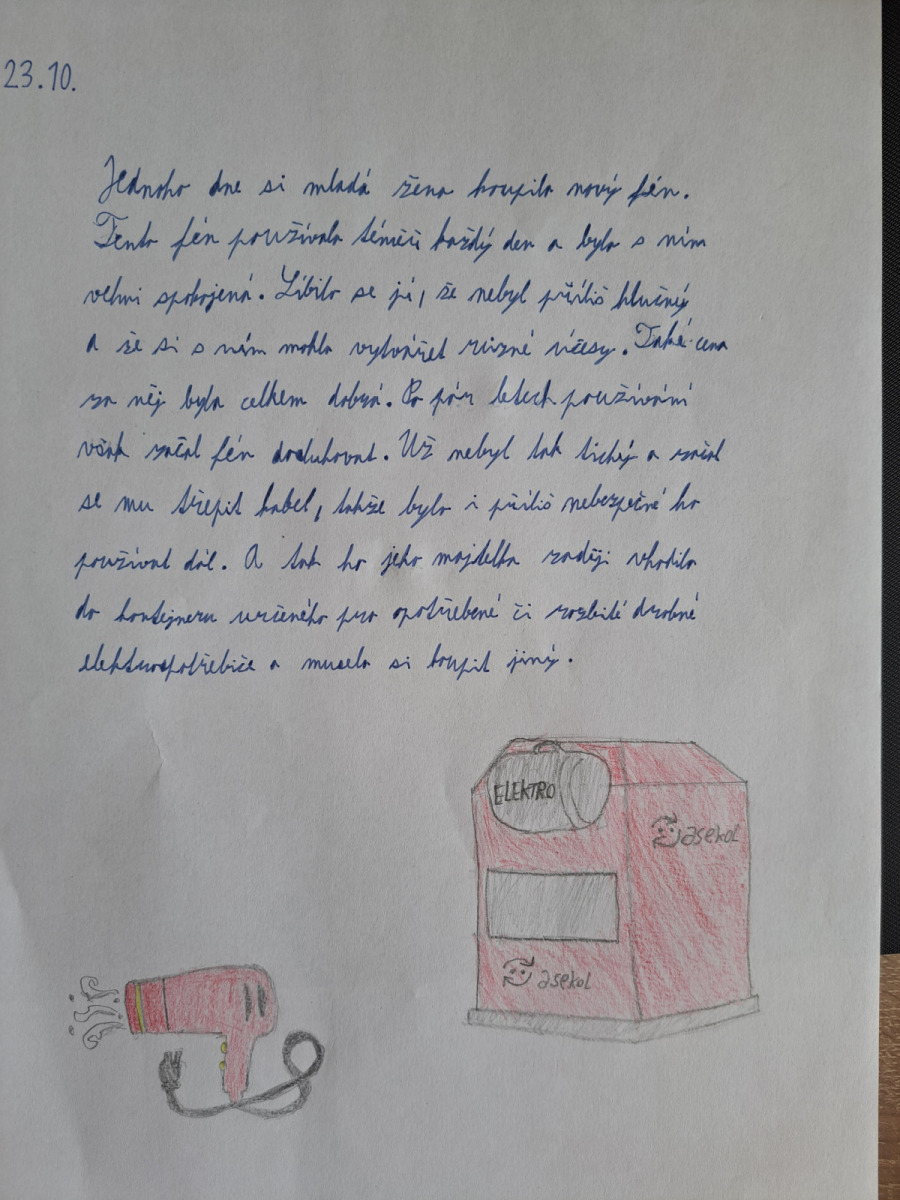 23.10.
Jednoho dne si mladá žena koupila nový fén.
Tento fén používala téměř každý den a byla s ním
velmi spokojená. Líbilo se jí, že nebyl příliš hlučný
a že si s ním mohla vytvářet různé účesy. Také cena
za něj byla celkem dobrá. Po pár letech používání
však začal fén dosluhovat. Už nebyl tak tichý a začal
se mu třepit kabel, takže bylo i příliš nebezpečné ho
používat dál. A tak ho jeho majitelka raději vhodila
do kontejneru určeného pro opotřebené či rozbité drobné
elektrospotřebiče a musela si koupit jiný.
ELEKTRO
asekol
asekol